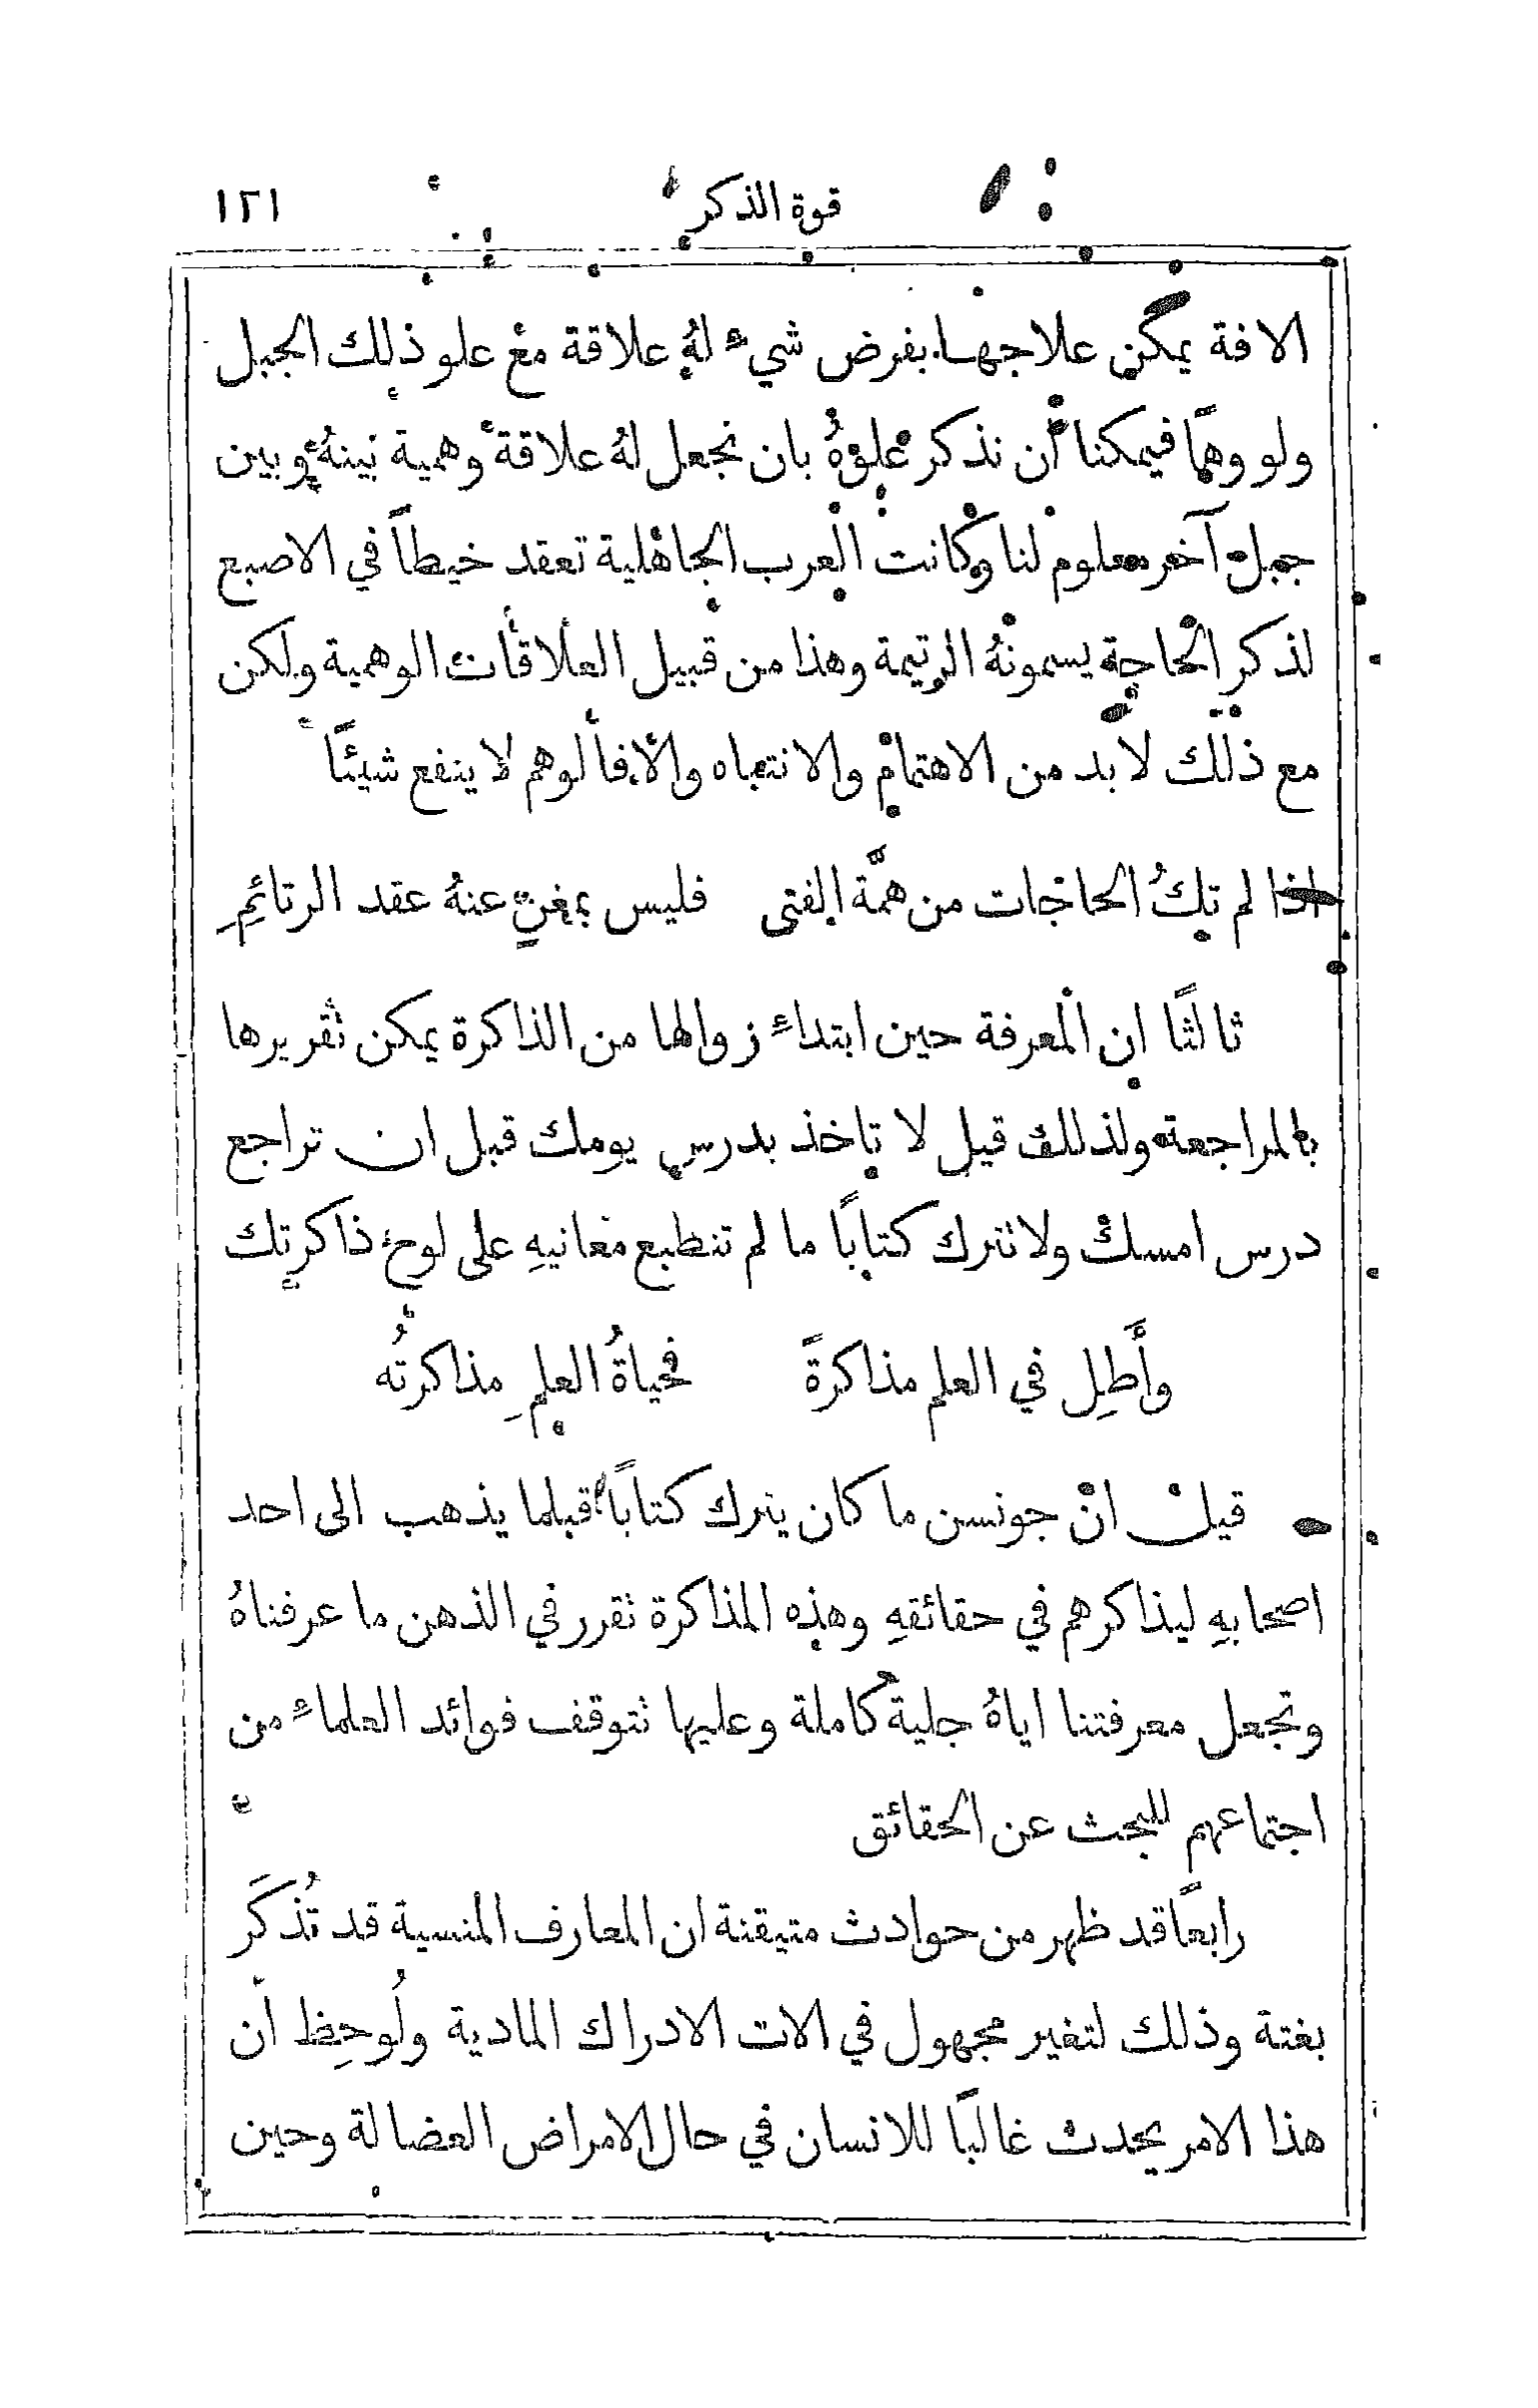 قوة الذكر ١٢١
الافة يمكن علاجها بفرض شيء لهُ علاقة مع علو ذلك الجبل
ولو وهمًا فيمكنا أن نذكر علوهُ بان نجعل لهُ علاقة وهمية بينهُ وبين
جبل آخر معلوم لنا وكانت العرب الجاهلية تعقد خيطاً في الاصبع
لذكر الحاجة يسمونهُ الرتيمة وهذا من قبيل العلاقات الوهمية ولكن
مع ذلك لا بد من الاهتمام والانتباه والا فالوهم لا ينفع شيئًا
اذا لم تكُ الحاجات من همَّة الفتى فليس بمغنٍ عنهُ عقد الرتائمِ
ثالثًا ان المعرفة حين ابتداء زوالها من الذاكرة يمكن نقريرها
بالمراجعة ولذلك قيل لا تاخذ بدرس يومك قبل ان تراجع
درس امسك ولا نترك كتابًا ما لم تنطبع معانيهِ على لوح ذاكرتك
وأَطِل في العلم مذاكرةً فحياةُ العلمِ مذاكرتُه
قيل ان جونسن ما كان يترك كتابًا قبلما يذهب الى احد
اصحابهِ ليذاكرهم في حقائقهِ وهذه المذاكرة نقرر في الذهن ما عرفناهُ
وتجعل معرفتنا اياهُ جلية كاملة وعليها نتوقف فوائد العلماء من
اجتماعهم للبحث عن الحقائق
رابعًا قد ظهر من حوادث متيقنة ان المعارف المنسية قد تُذكَر
بغتة وذلك لتغير مجهول في الات الادراك المادية ولُوحِظ ان
هذا الامر يحدث غالبًا للانسان في حال الامراض العضالة وحين